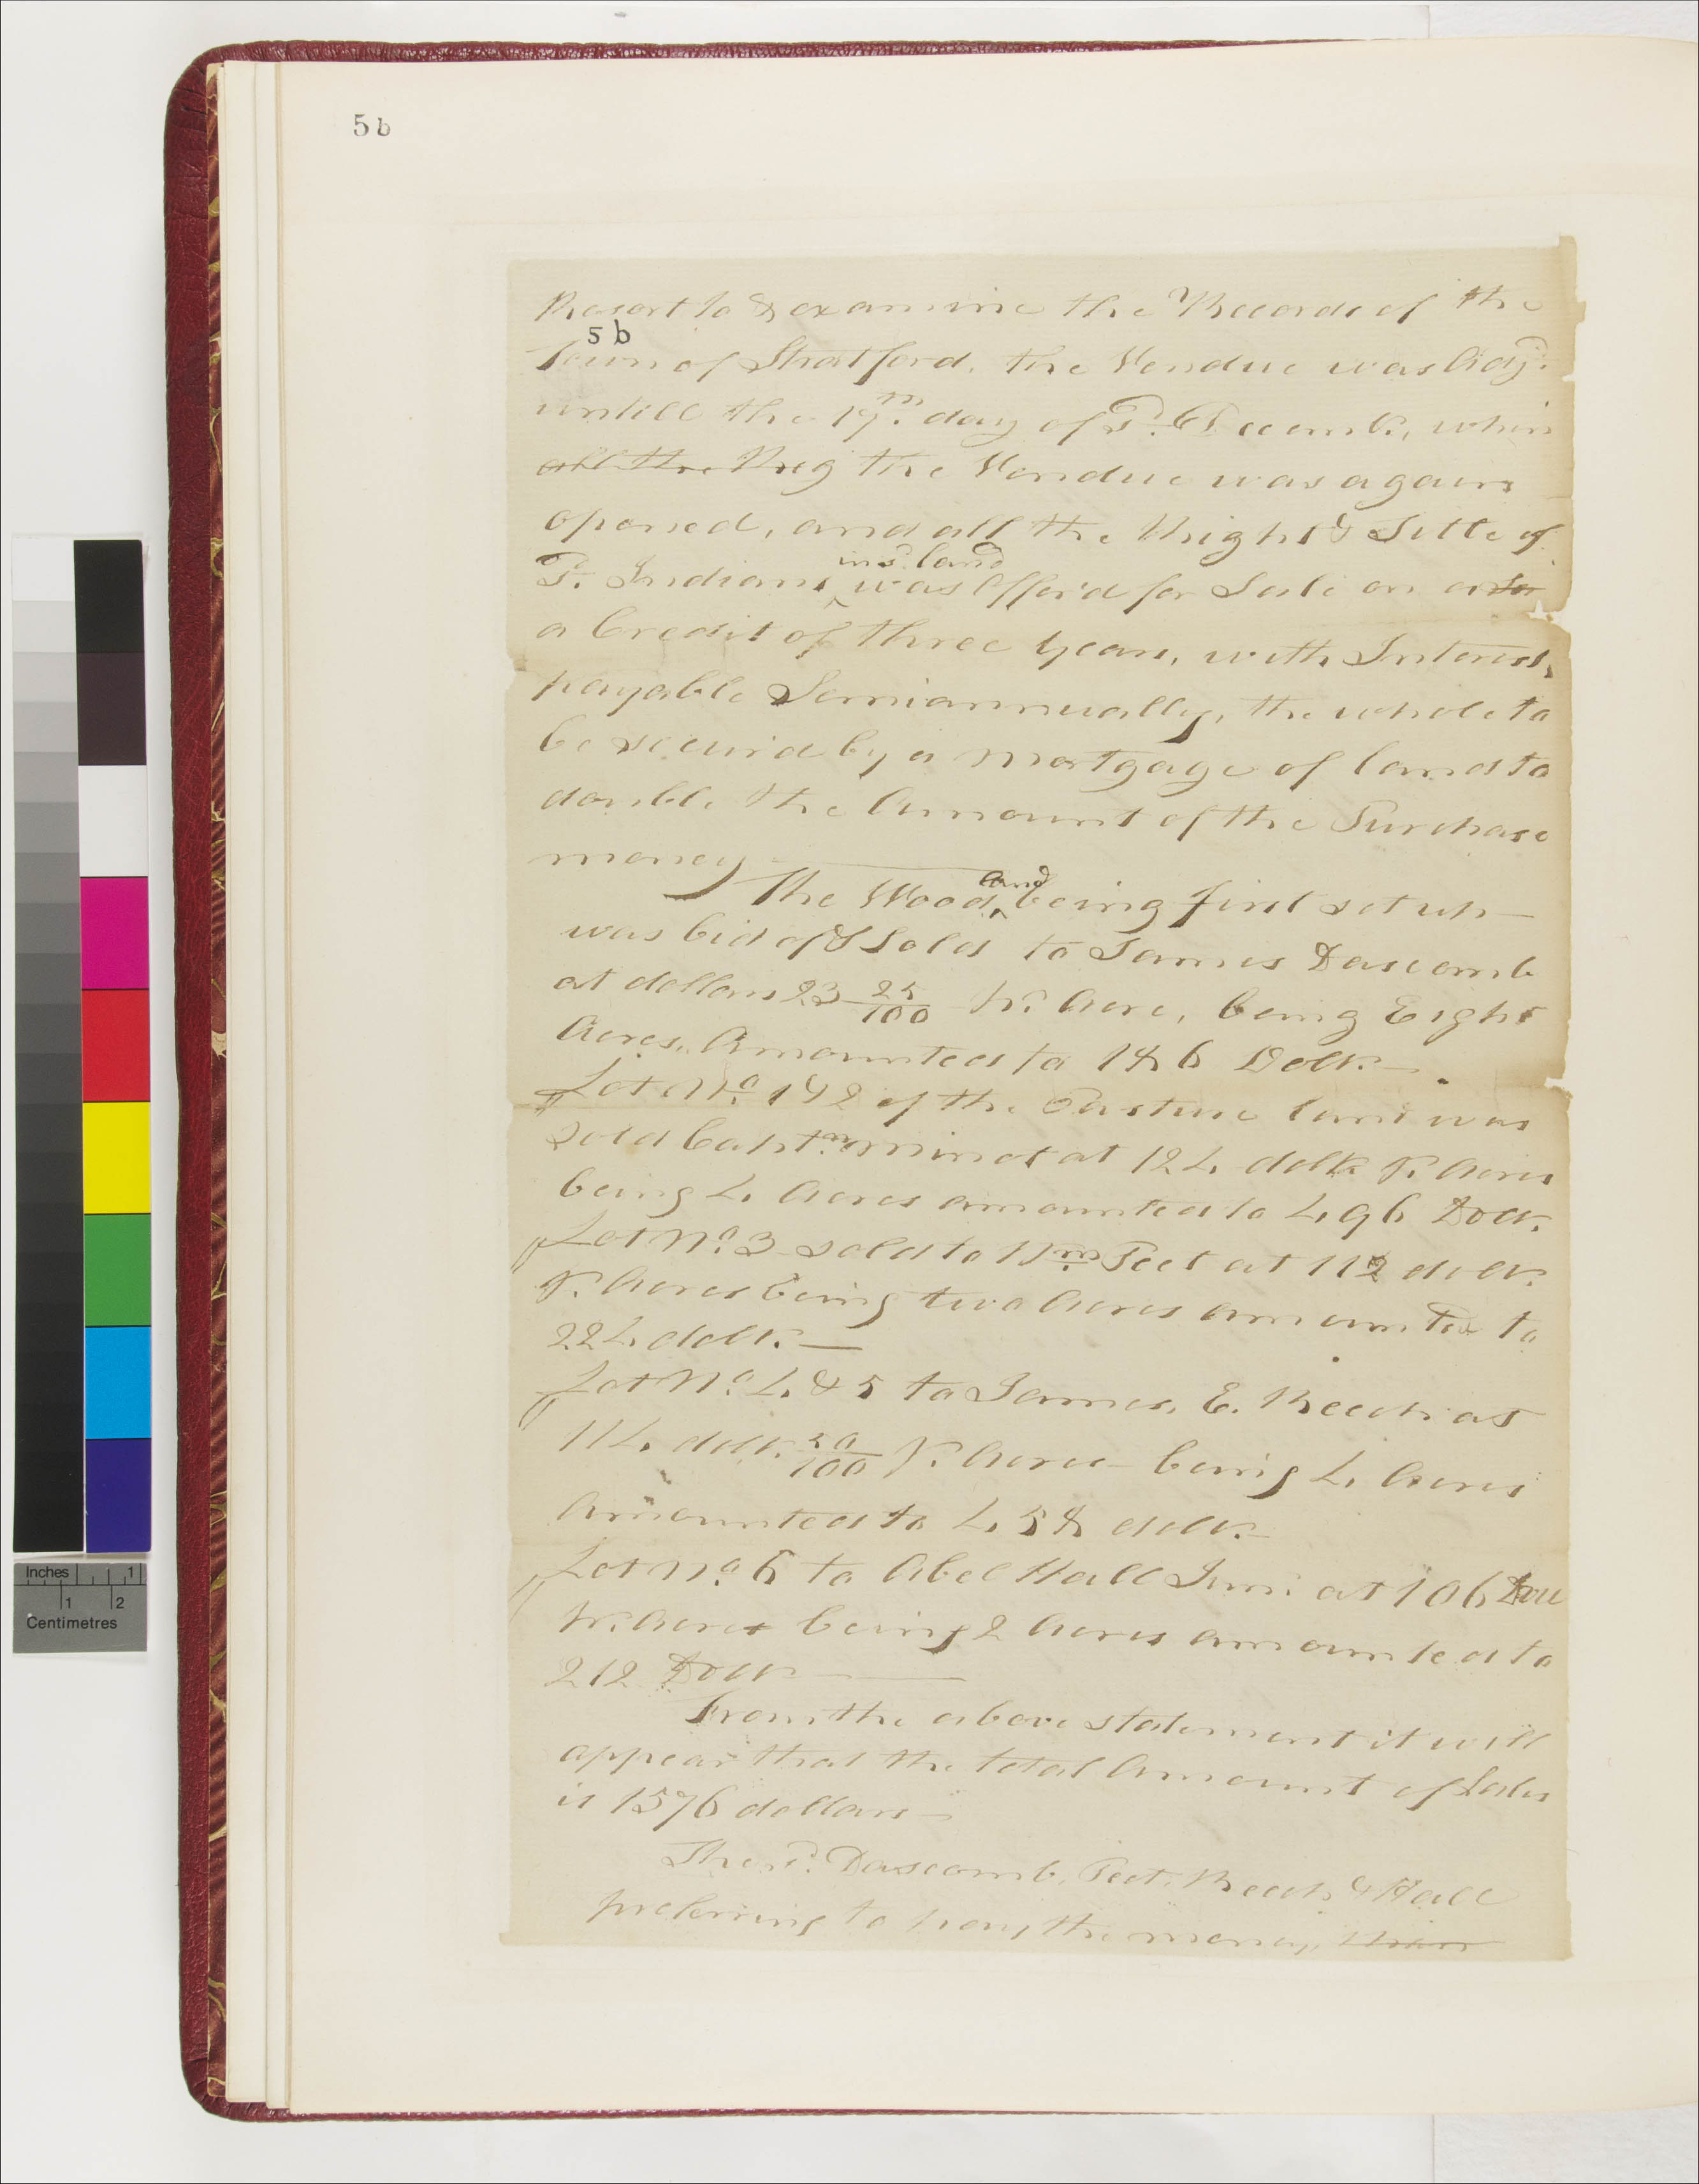 5 b
Resort to & examine the Records of the
5 b
Town of Stratford. the Vendue was Adjd.
untill the 19th. day of sd. Decemb., when
all the Reg the Vendue was again
opened, and all the Right & Title of
sd. Indians in sd. land was Offer'd for Sale on
a Credit of three years, with Interest,
payable Semiannually, the whole to
be secur'd by a mortgage of land to
double the Amount of the Purchase
money
The Wood land being first set up
was bid off & Sold to James Dascomb
at dollars 23 25/100 pr. Acre, being Eight
Acres, Amounted to 186 Dolls.
Lot No. 1 & 2 of the Pasture land was
sold Captn. Minot at 124 dolls pr. Acre
being 4 Acres amounted to 496 Dolls.
Lot No. 3 sold to Wm. Peet at 112 dolls.
pr. Acre being two Acres amounted to
224 dolls.
Lot No. 4 & 5 to James, E. Beech at
114 dolls. 50/100 pr. Acre being 4 Acres
Amounted to 458 dolls.
Lot No. 6 to Abel Hall Junr. at 106 Doll
pr. Acre being 2 Acres amounted to
212 Dolls
From the above statement it will
appear that the total Amount of Sales
is 1576 dollars
The sd. Dascomb, Peet, Beech, & Hall
preferring to pay the money, than
Inches 1
1 2
Centimetres